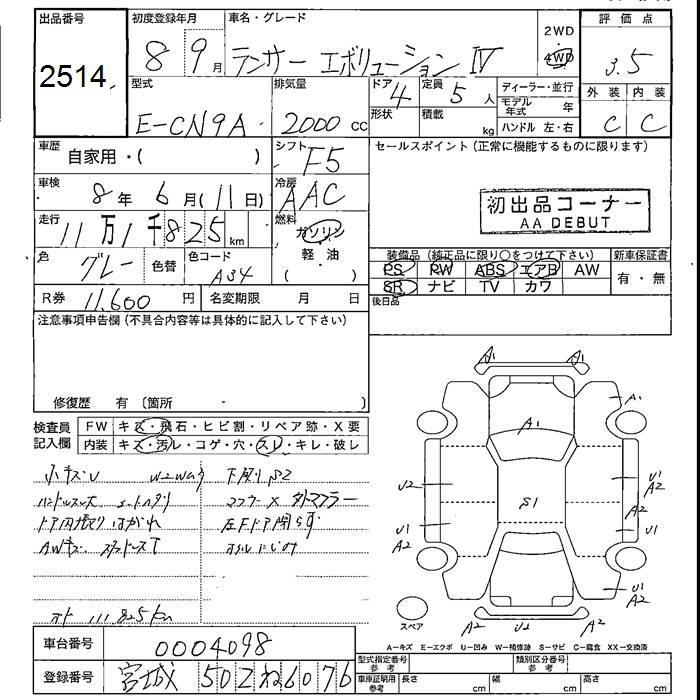 出品番号
2514
初度登録年月
8 9月
車名・グレード
ランサー エボリューション Ⅳ
2WD
4WD
評価点
3.5
型式
E-CN9A
排気量
2000 cc
ドア
4
形状
定員
5人
積載
kg
ディーラー・並行
モデル年式 年
ハンドル 左・右
外装
C
内装
C
車歴
自家用・( )
シフト
F5
セールスポイント(正常に機能するものに限ります)
車検
8年 6月(11日)
冷房
AAC
初出品コーナー
AA DEBUT
走行
11万1千825km
燃料
ガソリン
軽・油
( )
色
グレー
色替
色コード
A34
装備品(純正品に限り○をつけて下さい)
新車保証書
PS PW ABS エアB AW
有・無
SR ナビ TV カワ
R券
11,600円
名変期限 月 日
後日品
注意事項申告欄(不具合内容等は具体的に記入して下さい)
修復歴 有(箇所 )
検査員記入欄
FW キズ・飛石・ヒビ割・リペア跡・X要
内装 キズ・汚レ・コゲ・穴・スレ・キレ・破レ
小キズU
下廻りS2
マフラーX
ドア内張り はがれ
左Fドア開
AWキズ
オド 111,825km
A1
A1
A1
A1
U2
S1
U1
A2
U1
A2
U1
A2
U1
A2
A2
U2
A2
スペア
A-キズ E-エクボ U-凹み W-補修跡 S-サビ C-腐食 XX-交換済
車台番号
0004098
登録番号
宮城 502 ね6076
型式指定番号 参考
類別区分番号 参考
車庫証明用 参考
長さ cm
幅 cm
高さ cm